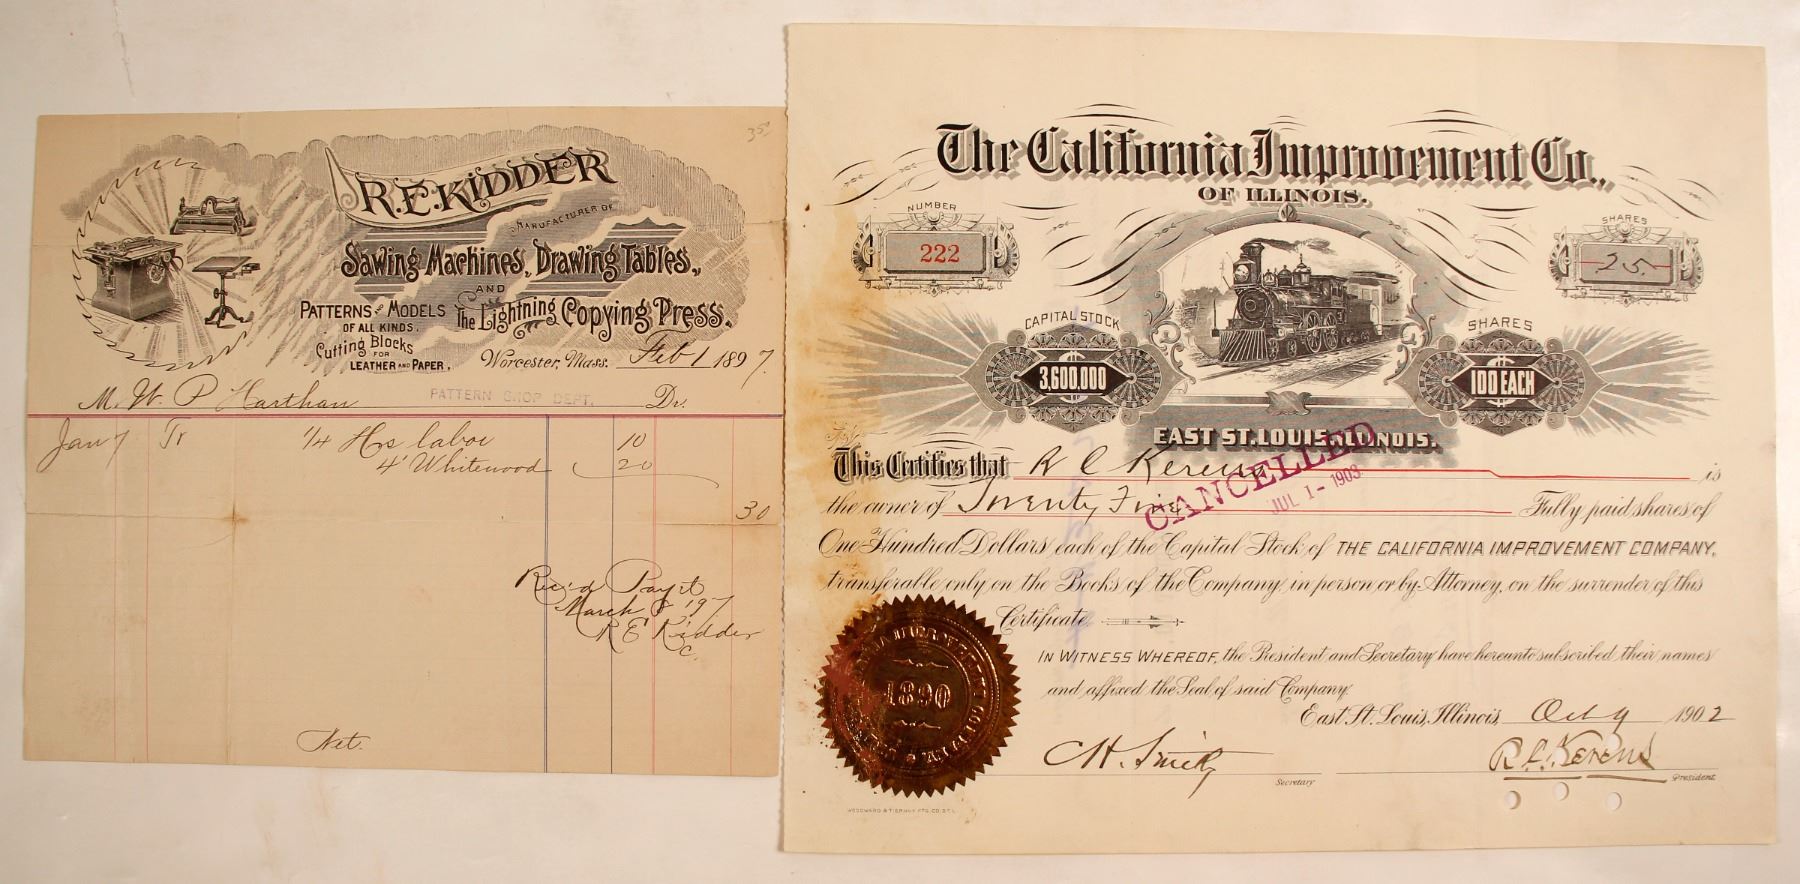 35
R.E. KIDDER
MANUFACTURER OF
Sawing Machines, Drawing Tables,
AND
PATTERNS AND MODELS
OF ALL KINDS.
The Lightning Copying Press.
Cutting Blocks
FOR
LEATHER AND PAPER.
Worcester, Mass. Feb 1 1897.
M. W. P. Harthan Dr.
PATTERN SHOP DEPT.
Jan 7 Tr 1/4 Hrs labor 10
4' Whitewood 20
30
Rec'd Pay't
March 8 '97
R E Kidder
C.
Net.
The California Improvement Co.,
OF ILLINOIS.
NUMBER
222
SHARES
25.
CAPITAL STOCK
3,600,000
SHARES
100 EACH
EAST ST. LOUIS, ILLINOIS.
This Certifies that R C Kerens is
the owner of Twenty Five Fully paid shares of
CANCELLED
JUL 1 - 1903
One Hundred Dollars each of the Capital Stock of THE CALIFORNIA IMPROVEMENT COMPANY,
transferable only on the Books of the Company, in person or by Attorney, on the surrender of this
Certificate
IN WITNESS WHEREOF, the President and Secretary have hereunto subscribed their names
and affixed the Seal of said Company.
East St. Louis, Illinois, Oct 9 1902
1890
C H. Smith
Secretary
R. C. Kerens
President
WOODWARD & TIERNAN PTG. CO. ST. L.